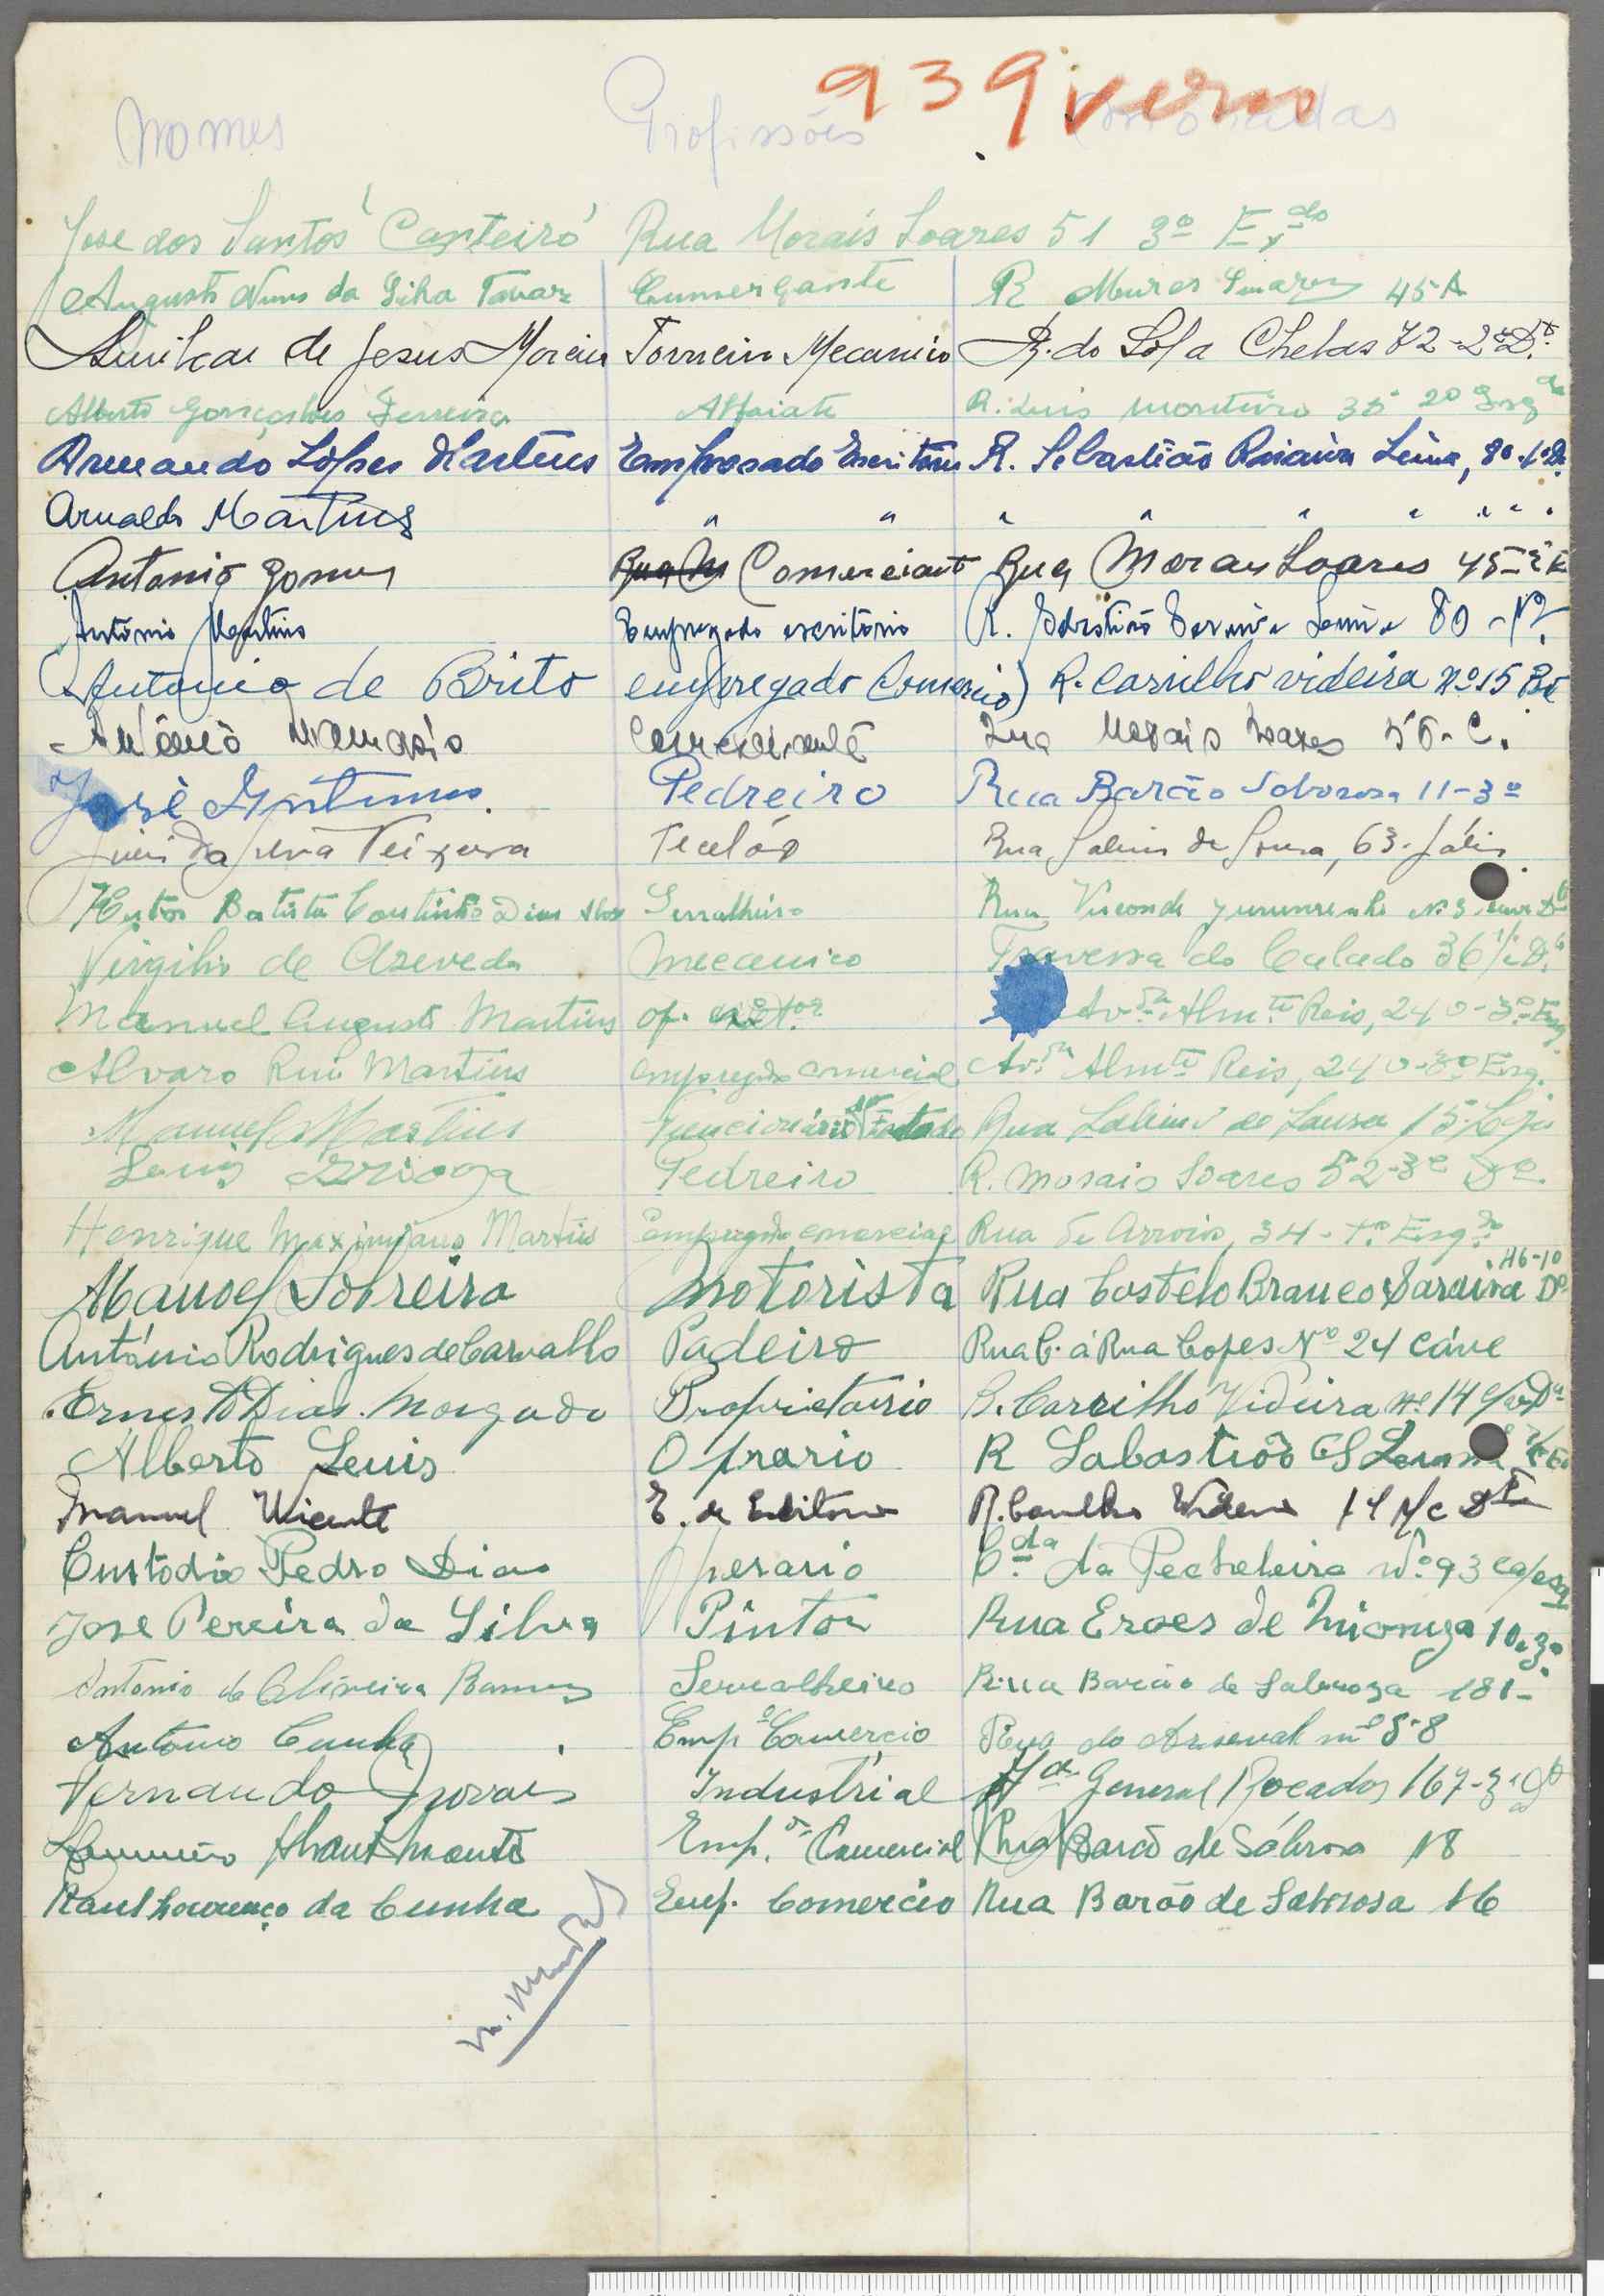 939 verso
Nomes Profissões Moradas
Jose dos Santos Canteiro Rua Morais Soares 51 3º
Augusto Nunes da Silha Tavarz R 45 A
Amilcar de Jesus Moreira Torneiro Mecanico R. do Sol a Chelas 72-2º Dº
Alberto Gonçalves Ferreira Alfaiate R. Luis Monteiro 35 2º
Armando Lopes Martins Empregado Escritório R. Sebastião Saraiva Lima, 80-1º D.
Arnaldo Martins " " " " " " " " "
Antonio Gomes Comerciante Rua Morais Soares 45
António Martins Empregado escritório R. Sebastião Saraiva Lima 80
Antonio de Brito empregado Comercio) R. Carrilho videira nº 15
António Comerciante Rua Morais Soares
José Antunes Pedreiro Rua Barão Sabrosa 11-3º
Teixeira Tecelão Rua Sabino de Sousa, 63
Batista Coutinho Dias Serralheiro Rua Visconde
Virgilio de Azevedo Mecanico Travessa do Calado 36
Manuel Augusto Martins of. Avda Almte Reis, 240-3º Esq.
Alvaro Rui Martins empregado comercial Avda Almte Reis, 240-3º Esq.
Manuel Martins Funcionário do Estado Rua Sabino de Sousa 15 Loja
Luis Pedreiro R. Morais Soares 52-3º Dº
Henrique Maximiano Martins Empregado comercial Rua de Arroios, 34-1º Esqdo
Manoel Sobreira Motorista Rua Castelo Branco Saraiva 46-1º Dº
António Rodrigues de Carvalho Padeiro Rua C. á Rua Lopes Nº 24 cáve
Ernesto Dias Morgado Proprietario R. Carrilho Videira nº 14
Alberto Luis Oprario R Sabastiõo
Manuel Vicente E. de R. Carrilho Videira 14 R/c Dto
Custodio Pedro Dias Operario Cda da Picheleira Nº 93
Jose Pereira da Silva Pintor Rua Eroes de 10-3º
Antonio de Oliveira Ramos Serralheiro Rua Barão de Sabroza 181-
Antonio Cunha Empº Comercio Rua do Arsenal nº
Fernando Morais Industrial General Roçadas 167-3º
Emp. Comercial Rua Barão de Sabrosa 18
Raul Lourenço da Cunha Emp. Comercio Rua Barão de Sabrosa 16